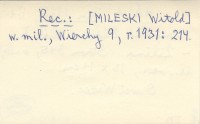 Rec.: [MILESKI Witold]
w. mil., Wierchy 9, r. 1931: 214.